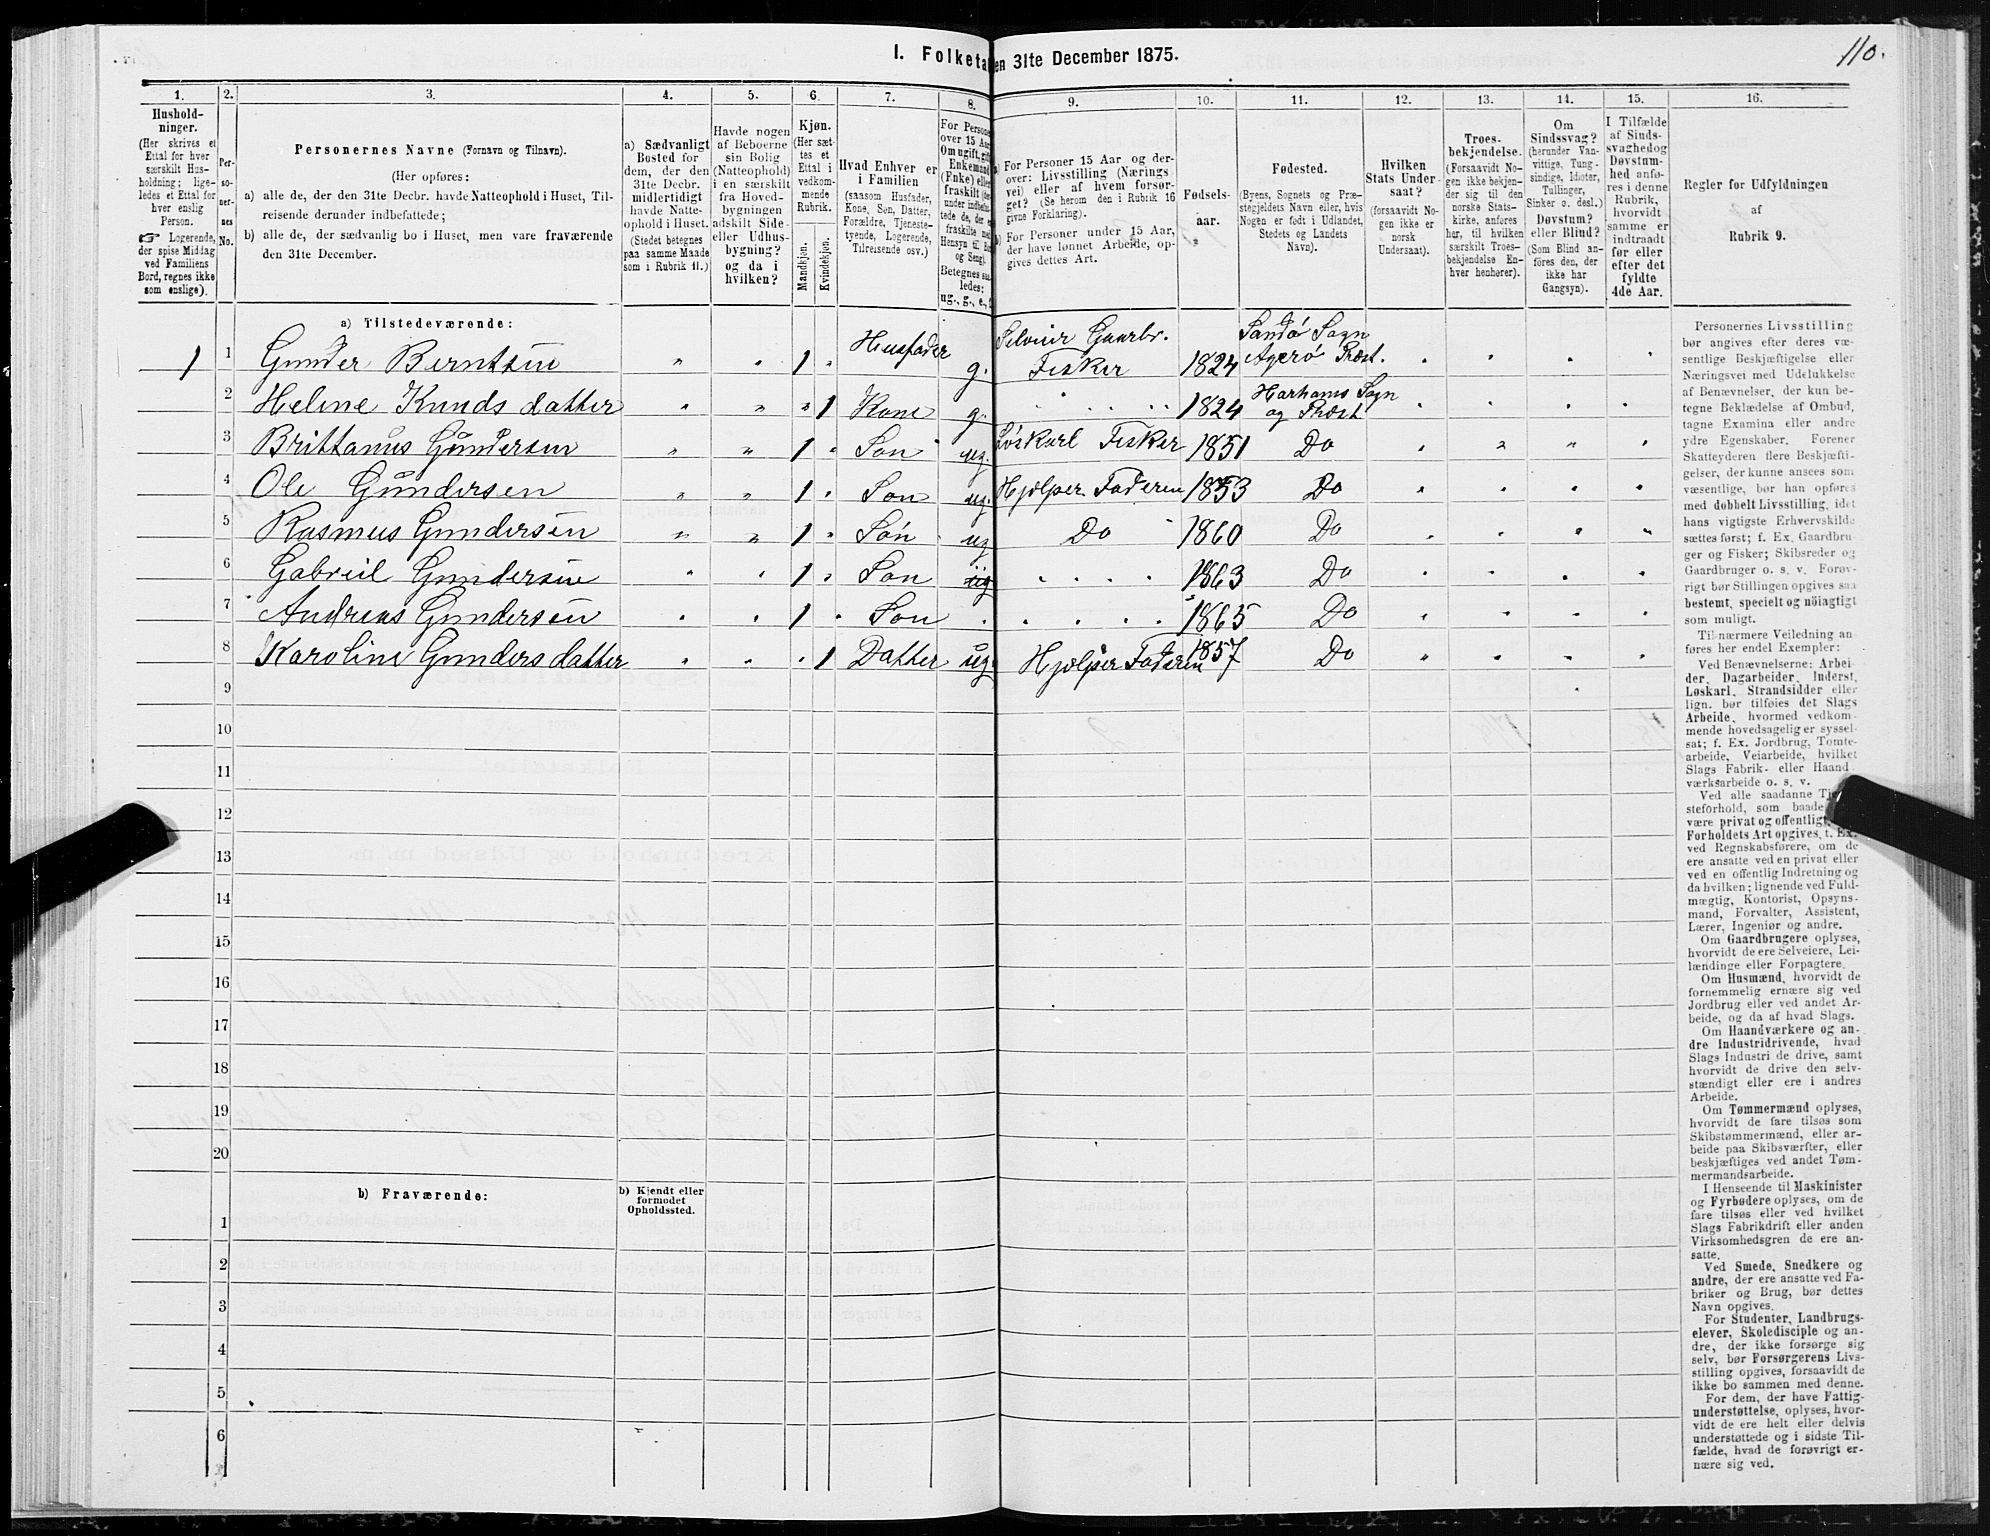 110.
I. Folketa en 31te December 1875.
1. 2. 3. 4. 5. 6. 7. 8. 9. 10. 11. 12. 13. 14. 15. 16.
Hushold-
ninger.
(Her skrives et
Ettal for hver
særskilt Hus-
holdning; lige-
ledes et Ettal for
hver enslig
Person.
☞ Logerende,
der spise Middag
ved Familiens
Bord, regnes ikke
som enslige).
Per-
so-
ner-
nes
No.
Personernes Navne (Fornavn og Tilnavn).
(Her opføres:
a) alle de, der den 31te Decbr. havde Natteophold i Huset, Til-
reisende derunder indbefattede;
b) alle de, der sædvanlig bo i Huset, men vare fraværende
den 31te December.
a) Sædvanligt
Bosted for
dem, der den
31te Decbr.
midlertidigt
havde Natte-
ophold i Huset.
(Stedet betegnes
paa samme Maade
som i Rubrik 11.)
Havde nogen
af Beboerne
sin Bolig
(Natteophold)
i en særskilt
fra Hoved-
bygningen
adskilt Side-
eller Udhus-
bygning?
og da i
hvilken?
Kjøn.
(Her sæt-
tes et
Ettal i
vedkom-
mende
Rubrik.
Mandkjøn.
Kvindekjøn.
Hvad Enhver er
i Familien
(saasom Husfader,
Kone, Søn, Datter,
Forældre, Tjeneste-
tyende, Logerende,
Tilreisende osv.)
For Persone
over 15 Aar
Om ugift, gift
Enkemand
(Enke) elle
fraskilt (de
under indbefat-
tede de, der e
fraskilte me
Hensyn til Bo
og Seng).
Betegnes saa-
ledes:
ug., g., e.,
a) For Personer 15 Aar og der-
over: Livsstilling (Nærings-
vei) eller af hvem forsør-
get? (Se herom den i Rubrik 16
givne Forklaring).
b) For Personer under 15 Aar,
der have lønnet Arbeide, op-
gives dettes Art.
Fødsels-
aar.
Fødested.
(Byens, Sognets og Præ-
stegjeldets Navn eller, hvis
Nogen er født i Udlandet,
Stedets og Landets
Navn).
Hvilken
Stats Under-
saat?
(forsaavidt No-
gen ikke er
norsk
Undersaat).
Troes-
bekjendelse.
(Forsaavidt No-
gen ikke bekjen-
der sig til den
norske Stats-
kirke, anføres
her, til hvilken
særskilt Troes-
bekjendelse En-
hver henhører).
Om
Sindssvag?
(herunder Van-
vittige, Tung-
sindige, Idioter,
Tullinger,
Sinker o. desl.)
Døvstum?
eller Blind?
(Som Blind an-
føres den, der
ikke har
Gangsyn).
I Tilfælde
af Sinds-
svaghed og
Døvstum-
hed anfø-
res i denne
Rubrik,
hvorvidt
samme er
indtraadt
før eller
efter det
fyldte
4de Aar.
Regler for Udfyldningen
af
Rubrik 9.
a) Tilstedeværende:
1 1 Gunder Berntsen " " 1 " Husfader g. Selveier Gaardbr. Fisker 1824 Sandø Sogn Agerø Præst.
2 Helene Knudsdatter " " " 1 Kone g. 1824 Harhams Sogn og Præst
3 Brittanus Gundersen " " 1 " Søn ug. Løskarl Fisker 1851 Do
4 Ole Gundersen " " 1 " Søn ug. Hjelper Faderen 1853 Do
5 Rasmus Gundersen " " 1 " Søn ug Do 1860 Do
6 Gabriel Gundersen " " 1 " Søn ug 1863 Do
7 Andreas Gundersen " " 1 " Søn 1865 Do
8 Karoline Gundersdatter " " " 1 Datter ug. Hjelper Faderen 1857 Do
9
10
11
12
13
14
15
16
17
18
19
20
b) Fraværende:
b) Kjendt eller
formodet
Opholdssted.
1
2
3
4
5
6
Personernes Livsstilling
bør angives efter deres væ-
sentlige Beskjæftigelse eller
Næringsvei med Udelukkelse
af Benævnelser, der kun be-
tegne Beklædelse af Ombud,
tagne Examina eller andre
ydre Egenskaber. Forener
Skatteyderen flere Beskjæfti-
gelser, der kunne ansees som
væsentlige, bør han opføres
med dobbelt Livsstilling, idet
hans vigtigste Erhvervskilde
sættes først; f. Ex. Gaardbru-
ger og Fisker; Skibsreder og
Gaardbruger o. s. v. Forøv-
rigt bør Stillingen opgives saa
bestemt, specielt og nöiagtigt
som muligt.
Til nærmere Veiledning an-
føres her endel Exempler:
Ved Benævnelserne: Arbei-
der, Dagarbeider, Inderst,
Løskarl, Strandsidder eller
lign. bør tilføies det Slags
Arbeide, hvormed vedkom-
mende hovedsagelig er syssel-
sat; f. Ex. Jordbrug, Tomte-
arbeide, Veiarbeide, hvilket
Slags Fabrik- eller Haand-
værksarbeide o. s. v.
Ved alle saadanne Tj
steforhold, som baade
være privat og offentligt,
Forholdets Art opgives, t. Ex.
ved Regnskabsførere, om de
ere ansatte ved en privat eller
ved en offentlig Indretning og
da hvilken; lignende ved Fuld-
mægtig, Kontorist, Opsyns-
mand, Forvalter, Assistent,
Lærer, Ingeniør og andre.
Om Gaardbrugere oplyses,
hvorvidt de ere Selveiere, Lei-
lændinge eller Forpagtere.
Om Husmænd, hvorvidt de
fornemmelig ernære sig ved
Jordbrug eller ved andet Ar-
beide, og da af hvad Slags.
Om Haandværkere og an-
dre Industridrivende, hvad
Slags Industri de drive, samt
hvorvidt de drive den selv-
stændigt eller ere i andres
Arbeide.
Om Tømmermænd oplyses,
hvorvidt de fare tilsøs som
Skibstømmermænd, eller ar-
beide paa Skibsværfter, eller
beskjæftiges ved andet Tøm-
mermandsarbeide.
I Henseende til Maskinister
og Fyrbødere oplyses, om de
fare tilsøs eller ved hvilket
Slags Fabrikdrift eller anden
Virksomhedsgren de ere an-
satte.
Ved Smede, Snedkere og
andre, der ere ansatte ved Fa-
briker og Brug, bør dettes
Navn opgives.
For Studenter, Landbrugs-
elever, Skoledisciple og an-
dre, der ikke forsørge sig
selv, bør Forsørgerens Livs-
stilling opgives, forsaavidt de
ikke bo sammen med denne.
For dem, der have Fattig-
understøttelse, oplyses, hvor-
vidt de ere helt eller delvis
understøttede og i sidste Til-
fælde, hvad de forøvrigt er-
nære sig ved.